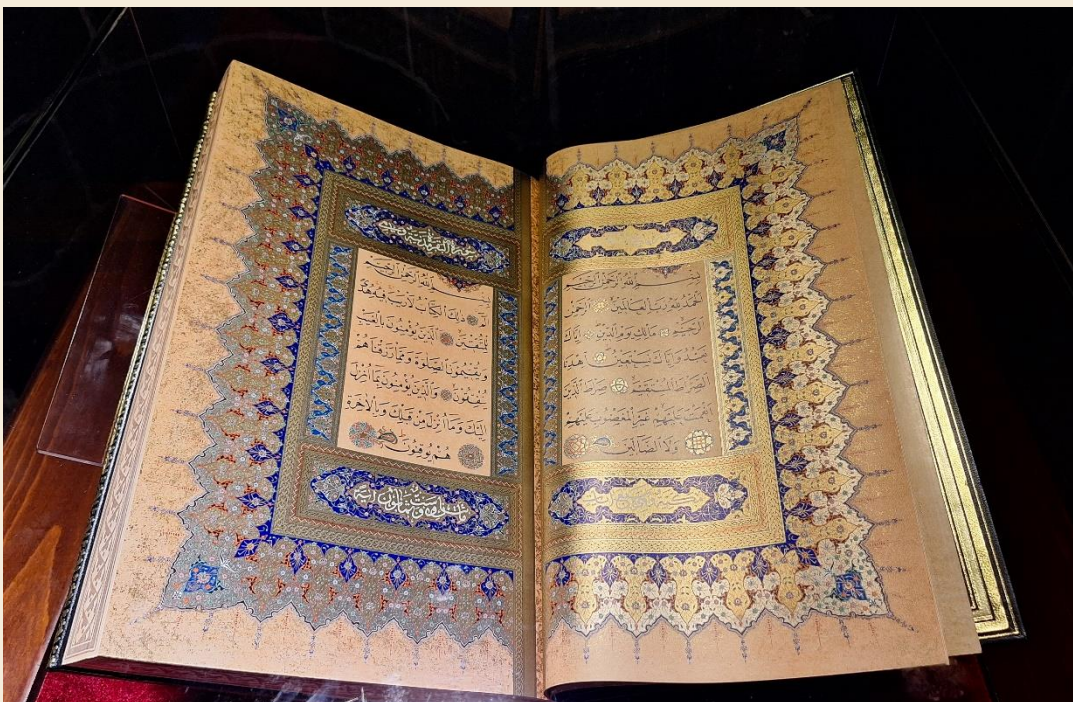 بِسْمِ اللهِ الرَّحْمٰنِ الرَّحِيمِ
اَلْحَمْدُ لِلهِ رَبِّ الْعَالَمِينَ اَلرَّحْمٰنِ
الرَّحِيمِ مَالِكِ يَوْمِ الدِّينِ اِيَّاكَ
نَعْبُدُ وَاِيَّاكَ نَسْتَعِينُ اِهْدِنَا
الصِّرَاطَ الْمُسْتَقِيمَ صِرَاطَ الَّذِينَ
اَنْعَمْتَ عَلَيْهِمْ غَيْرِ الْمَغْضُوبِ عَلَيْهِمْ
وَلَا الضَّالِّينَ
سورة البقرة مدنية وهى
بِسْمِ اللهِ الرَّحْمٰنِ الرَّحِيمِ
الٓمٓ ذٰلِكَ الْكِتَابُ لَا رَيْبَ فِيهِ هُدًى
لِلْمُتَّقِينَ اَلَّذِينَ يُؤْمِنُونَ بِالْغَيْبِ
وَيُقِيمُونَ الصَّلٰوةَ وَمِمَّا رَزَقْنَاهُمْ
يُنْفِقُونَ وَالَّذِينَ يُؤْمِنُونَ بِمَا اُنْزِلَ
اِلَيْكَ وَمَا اُنْزِلَ مِنْ قَبْلِكَ وَبِالْاٰخِرَةِ
هُمْ يُوقِنُونَ
مائتان وست وثمانون آية